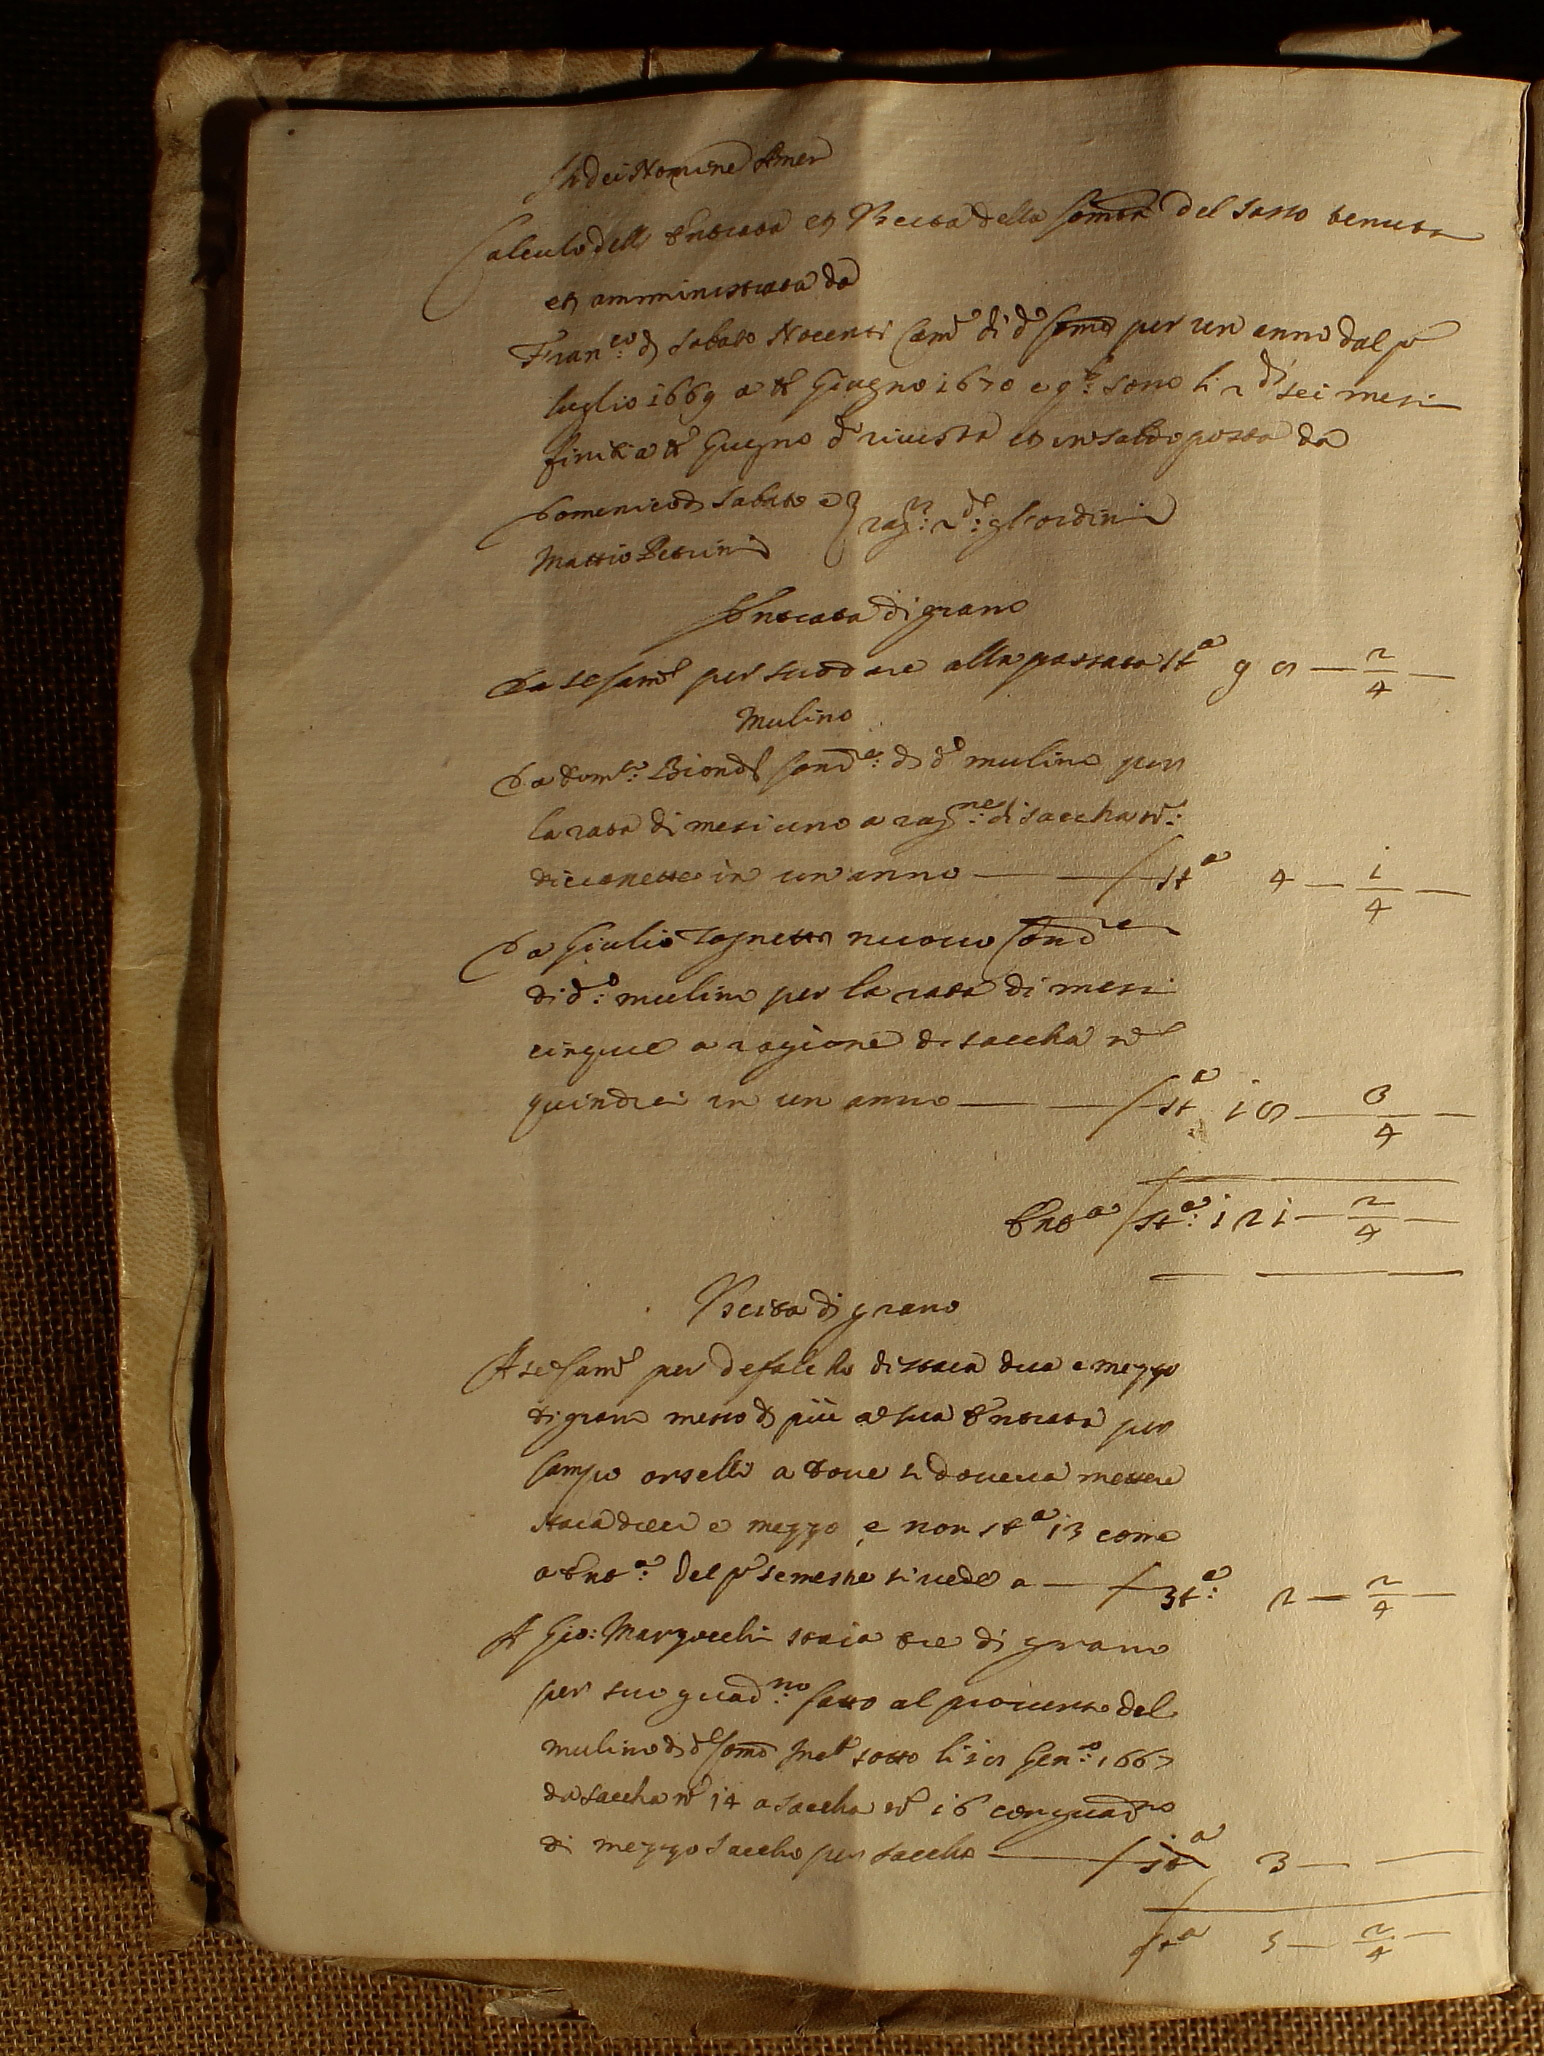 In dei Nomine Amen
Calculo dell Entrata et Uscita della Comtà del Sasso tenuta
et amministrata da
Franco: di Sabato Nocenti Camo di do Como per un anno dal po
luglio 1669 a to Giugno 1670 e qto: sono li 2di sei mesi
finiti a to Giugno do rivista et in saldo posta da
Domenico di Sabato e
Mattio Petrini } ragri: 2do: gl'ordini
Entrata di grano
Da se Camo per suo dare alla passata sta 98 — 2/4 —
Mulino
Da Domco: Biondi condre: di do mulino per
la rata di mesi uno a ragne: di saccha no:
diecenette in un anno — — sta 4 — 1/4 —
Da Giulio Tognetti nuovo Condre
di do: mulino per la rata di mesi
cinque a ragione di saccha no
quindici in un anno — — sta 18 — 3/4 —
Enta sta: 121 — 2/4 —
Uscita di grano
A se Camo per defalcho di staia dua e mezzo
di grano messo di più a sua Entrata per
Campo orselli a dove si doveva mettere
staia dieci e mezzo e non sta 13 come
a Enta: del po semestre si vede a — sta: 2 — 2/4 —
A Gio: Marzocchi staia tre di grano
per suo guadno: fatto al provento del
mulino di da Como sotto li Genro: 1667
da saccha no 14 a saccha no 16 con guadno
di mezzo saccho per saccho — sta 3 — —
sta 5 — 2/4 —